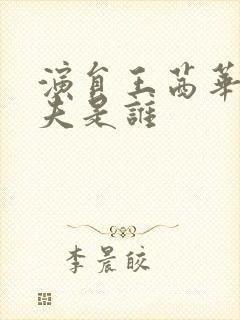 演員王茜華
夫是誰
李晨皎